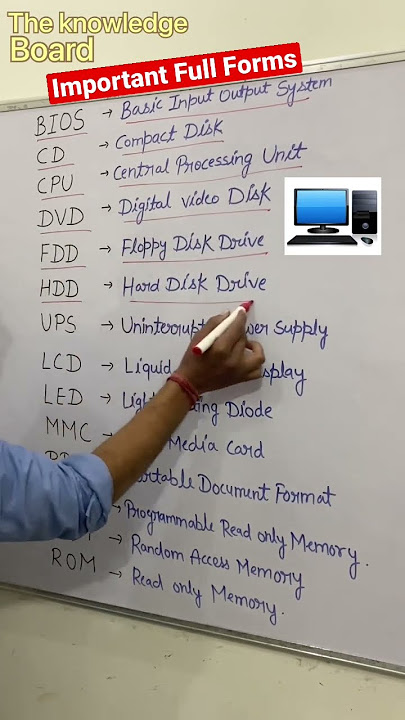 The knowledge
Board
Important Full Forms
BIOS → Basic Input Output System
CD → Compact Disk
CPU → Central Processing Unit
DVD → Digital Video Disk
FDD → Floppy Disk Drive
HDD → Hard Disk Drive
UPS → Supply
LCD → Liquid
LED → Diode
MMC Media Card
Document Format
Programmable Read only Memory.
→ Random Access Memory
ROM → Read only Memory.